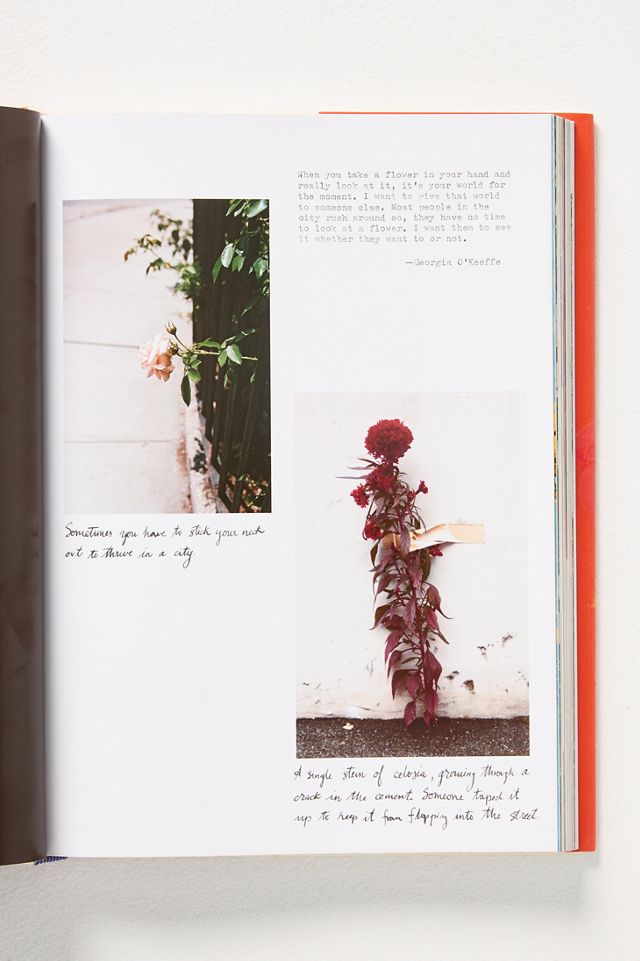 When you take a flower in your hand and
really look at it, it's your world for
the moment. I want to give that world
to someone else. Most people in the
city rush around so, they have no time
to look at a flower. I want them to see
it whether they want to or not.
—Georgia O'Keeffe
Sometimes you have to stick your neck
out to thrive in a city.
A single stem of celosia, growing through a
crack in the cement. Someone taped it
up to keep it from flopping into the street.